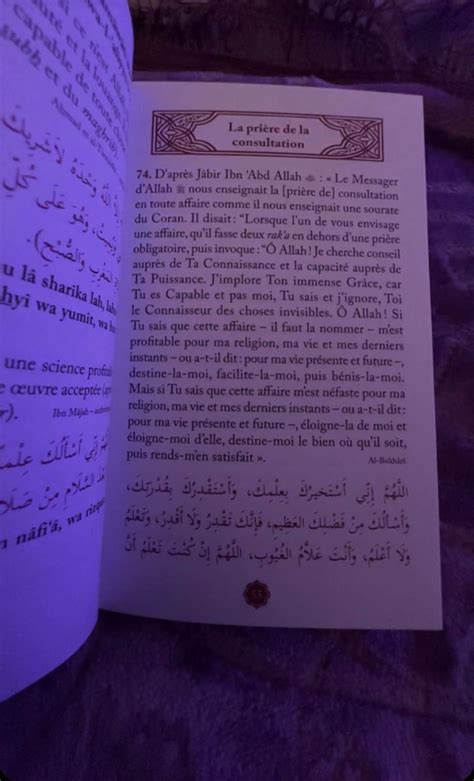 ce tient Allah
et la louange
capable de toute ch
subh et du maghrib
Ahmad
الله وَحْدَهُ لَا شَرِيكَ
وَهُوَ عَلَى كُلِّ
المَغْرِبِ وَالصُّبْحِ).
u lâ sharika lah, lah
hyi wa yumit, wa hu
une science profita
e œuvre acceptée (ap
r). Ibn Mâjah
اللَّهُمَّ إِنِّي أَسْأَلُكَ عِلْمًا
السَّلَامِ مِنْ
n nâfi'â, wa rizq
La prière de la
consultation
74. D'après Jâbir Ibn 'Abd Allah : « Le Messager
d'Allah ﷺ nous enseignait la [prière de] consultation
en toute affaire comme il nous enseignait une sourate
du Coran. Il disait : "Lorsque l'un de vous envisage
une affaire, qu'il fasse deux rak'a en dehors d'une prière
obligatoire, puis invoque : "Ô Allah ! Je cherche conseil
auprès de Ta Connaissance et la capacité auprès de
Ta Puissance. J'implore Ton immense Grâce, car
Tu es Capable et pas moi, Tu sais et j'ignore, Toi
le Connaisseur des choses invisibles. Ô Allah ! Si
Tu sais que cette affaire – il faut la nommer – m'est
profitable pour ma religion, ma vie et mes derniers
instants – ou a-t-il dit : pour ma vie présente et future –,
destine-la-moi, facilite-la-moi, puis bénis-la-moi.
Mais si Tu sais que cette affaire m'est néfaste pour ma
religion, ma vie et mes derniers instants – ou a-t-il dit :
pour ma vie présente et future –, éloigne-la de moi et
éloigne-moi d'elle, destine-moi le bien où qu'il soit,
puis rends-m'en satisfait ».
Al-Bukhâri
اللَّهُمَّ إِنِّي أَسْتَخِيرُكَ بِعِلْمِكَ، وَأَسْتَقْدِرُكَ بِقُدْرَتِكَ،
وَأَسْأَلُكَ مِنْ فَضْلِكَ العَظِيمِ، فَإِنَّكَ تَقْدِرُ وَلَا أَقْدِرُ، وَتَعْلَمُ
وَلَا أَعْلَمُ، وَأَنْتَ عَلَّامُ الغُيُوبِ، اللَّهُمَّ إِنْ كُنْتَ تَعْلَمُ أَنَّ
55